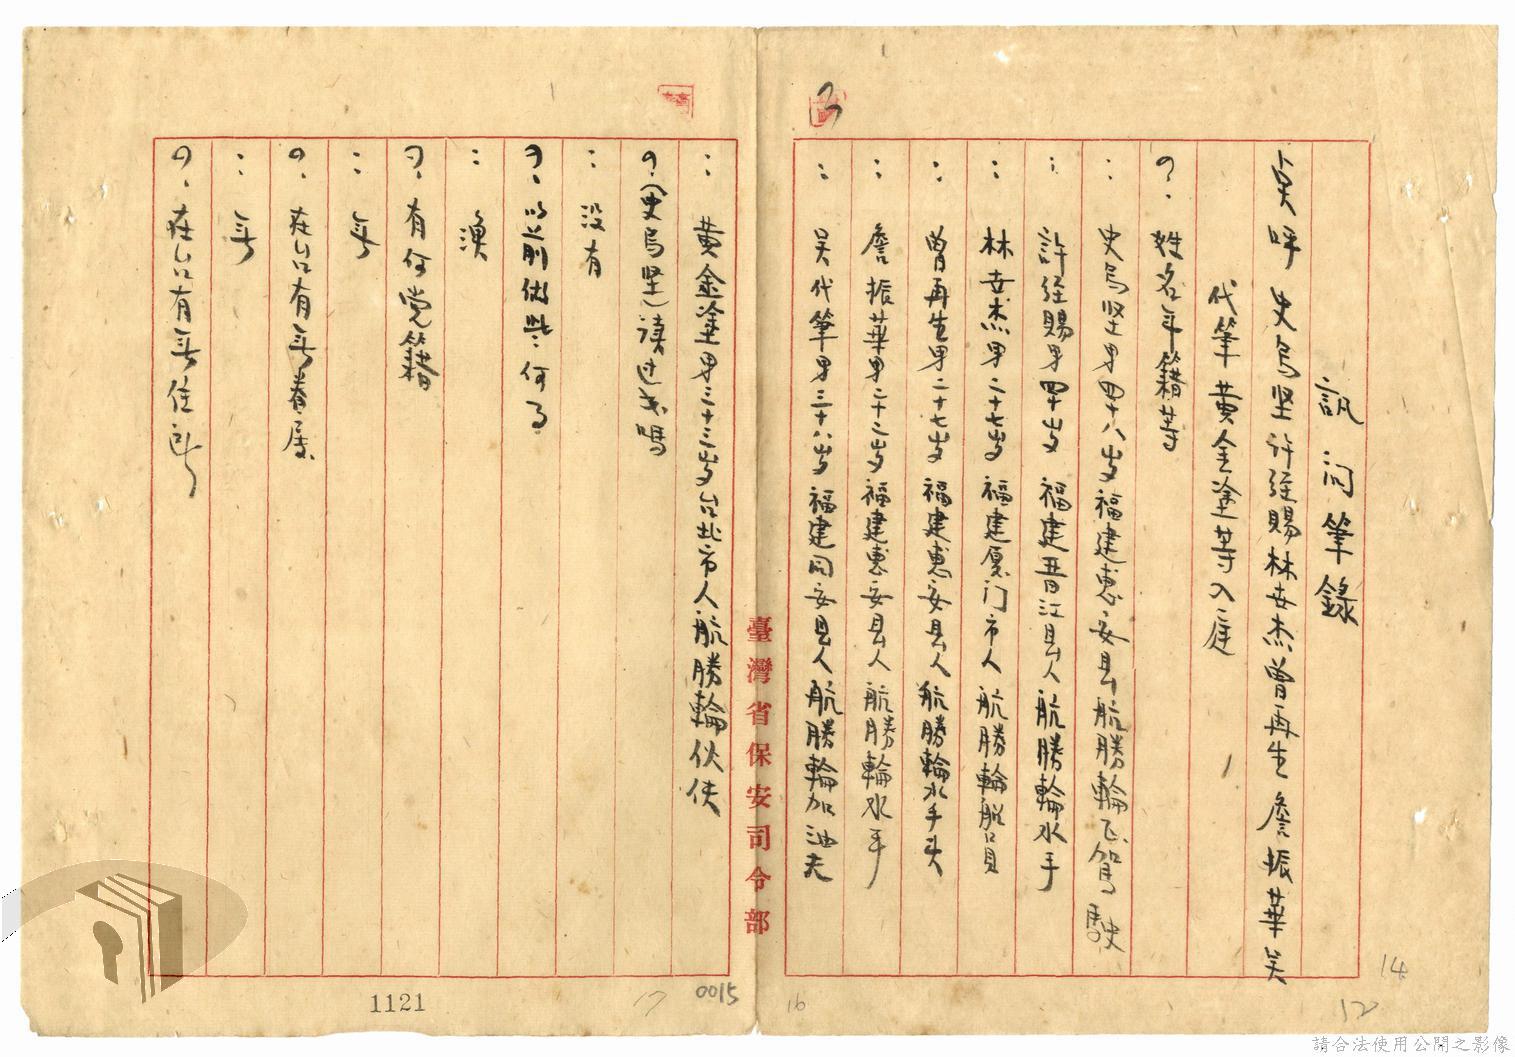 訊问筆錄
吳呼史烏坚許經賜林世杰曾再生詹振華吴
代筆黄金塗等入庭
?姓名年籍等
:史烏坚男四十八岁福建惠安县航勝輪正駕駛
:許經賜男四十岁福建晋江县人航勝輪水手
:林世杰男二十七岁福建厦门市人航勝輪船員
:曾再生男二十七岁福建惠安县人航勝輪水手头
:詹振華男二十二岁福建惠安县人航勝輪水手
:吴代筆男三十八岁福建同安县人航勝輪加油夫
:黄金塗男三十三岁台北市人航勝輪伙伕
?(史烏坚)读过书嗎
:没有
?以前做些何事
:漁
?有何党籍
:無
?在台有無眷属
:無
?在台有無住所
臺灣省保安司令部
1121
17
0015
16
12
14
請合法使用公開之影像